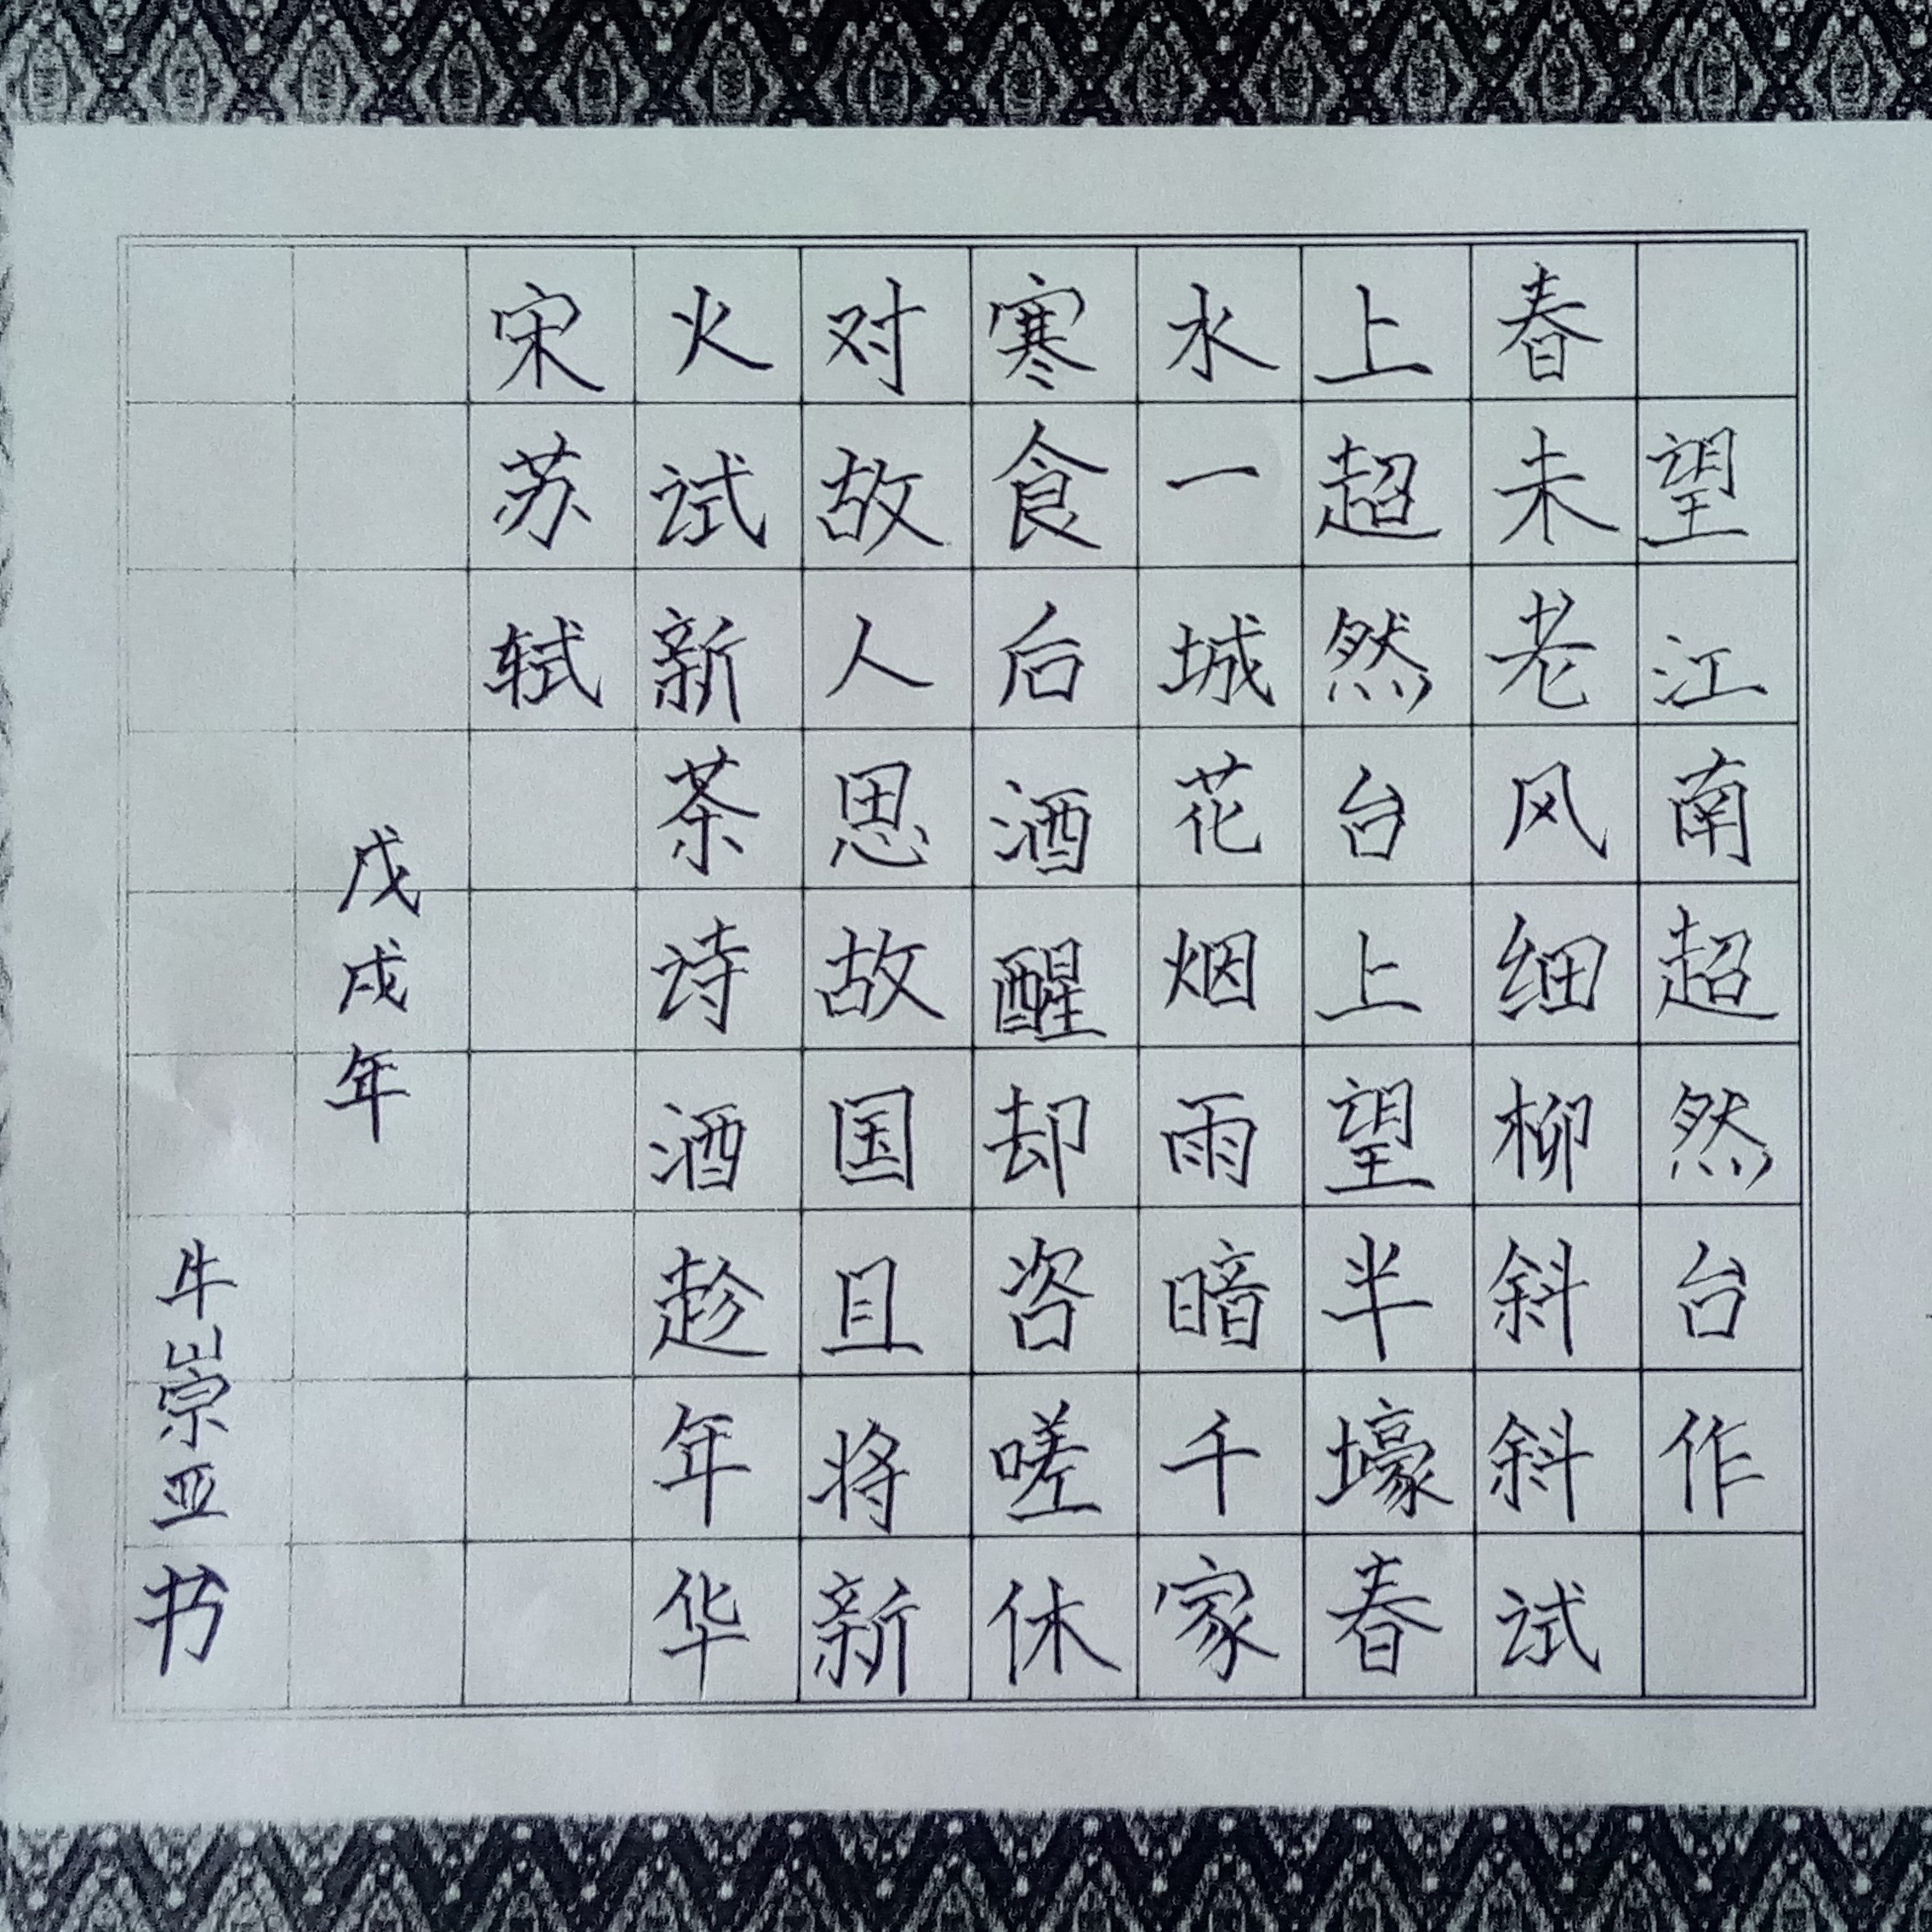 望江南超然台作
春未老风细柳斜斜试
上超然台上望半壕春
水一城花烟雨暗千家
寒食后酒醒却咨嗟休
对故人思故国且将新
火试新茶诗酒趁年华
宋苏轼
戊戌年
牛崇亚书